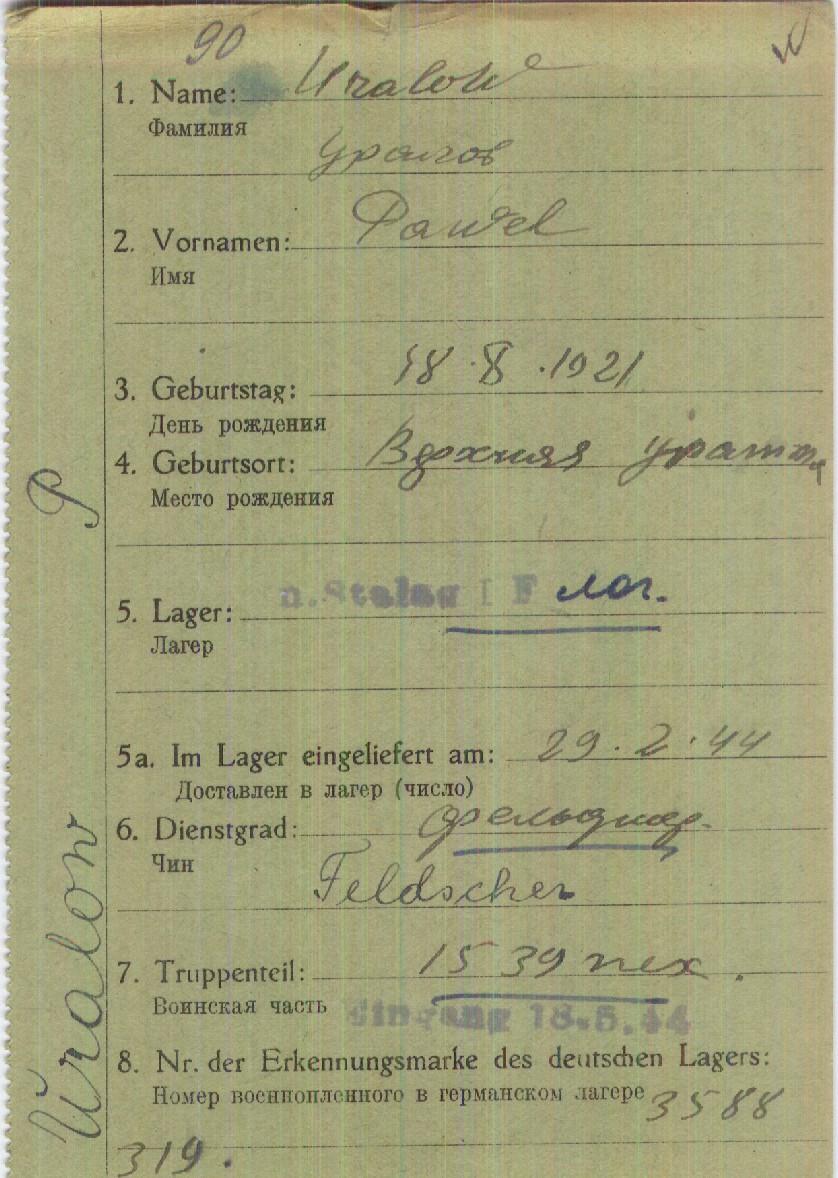 90
1. Name: Uralow
Фамилия
Уралов
2. Vornamen: Pawel
Имя
3. Geburtstag: 18.8.1921
День рождения
4. Geburtsort:
Место рождения
n. Stalag I F лог.
5. Lager:
Лагер
5a. Im Lager eingeliefert am: 29.2.44
Доставлен в лагер (число)
6. Dienstgrad: фельдшер.
Чин
Feldscher
7. Truppenteil: 1539 пех.
Воинская часть
Eingang 18.5.44
8. Nr. der Erkennungsmarke des deutschen Lagers:
Номер военнопленного в германском лагере 3588
319.
Uralow P